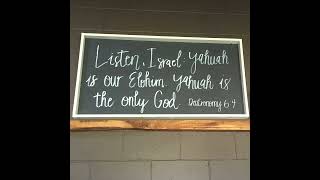 Listen, Israel: Yahuah
is our Elohim. Yahuah is
the only God. Deutronomy 6:4